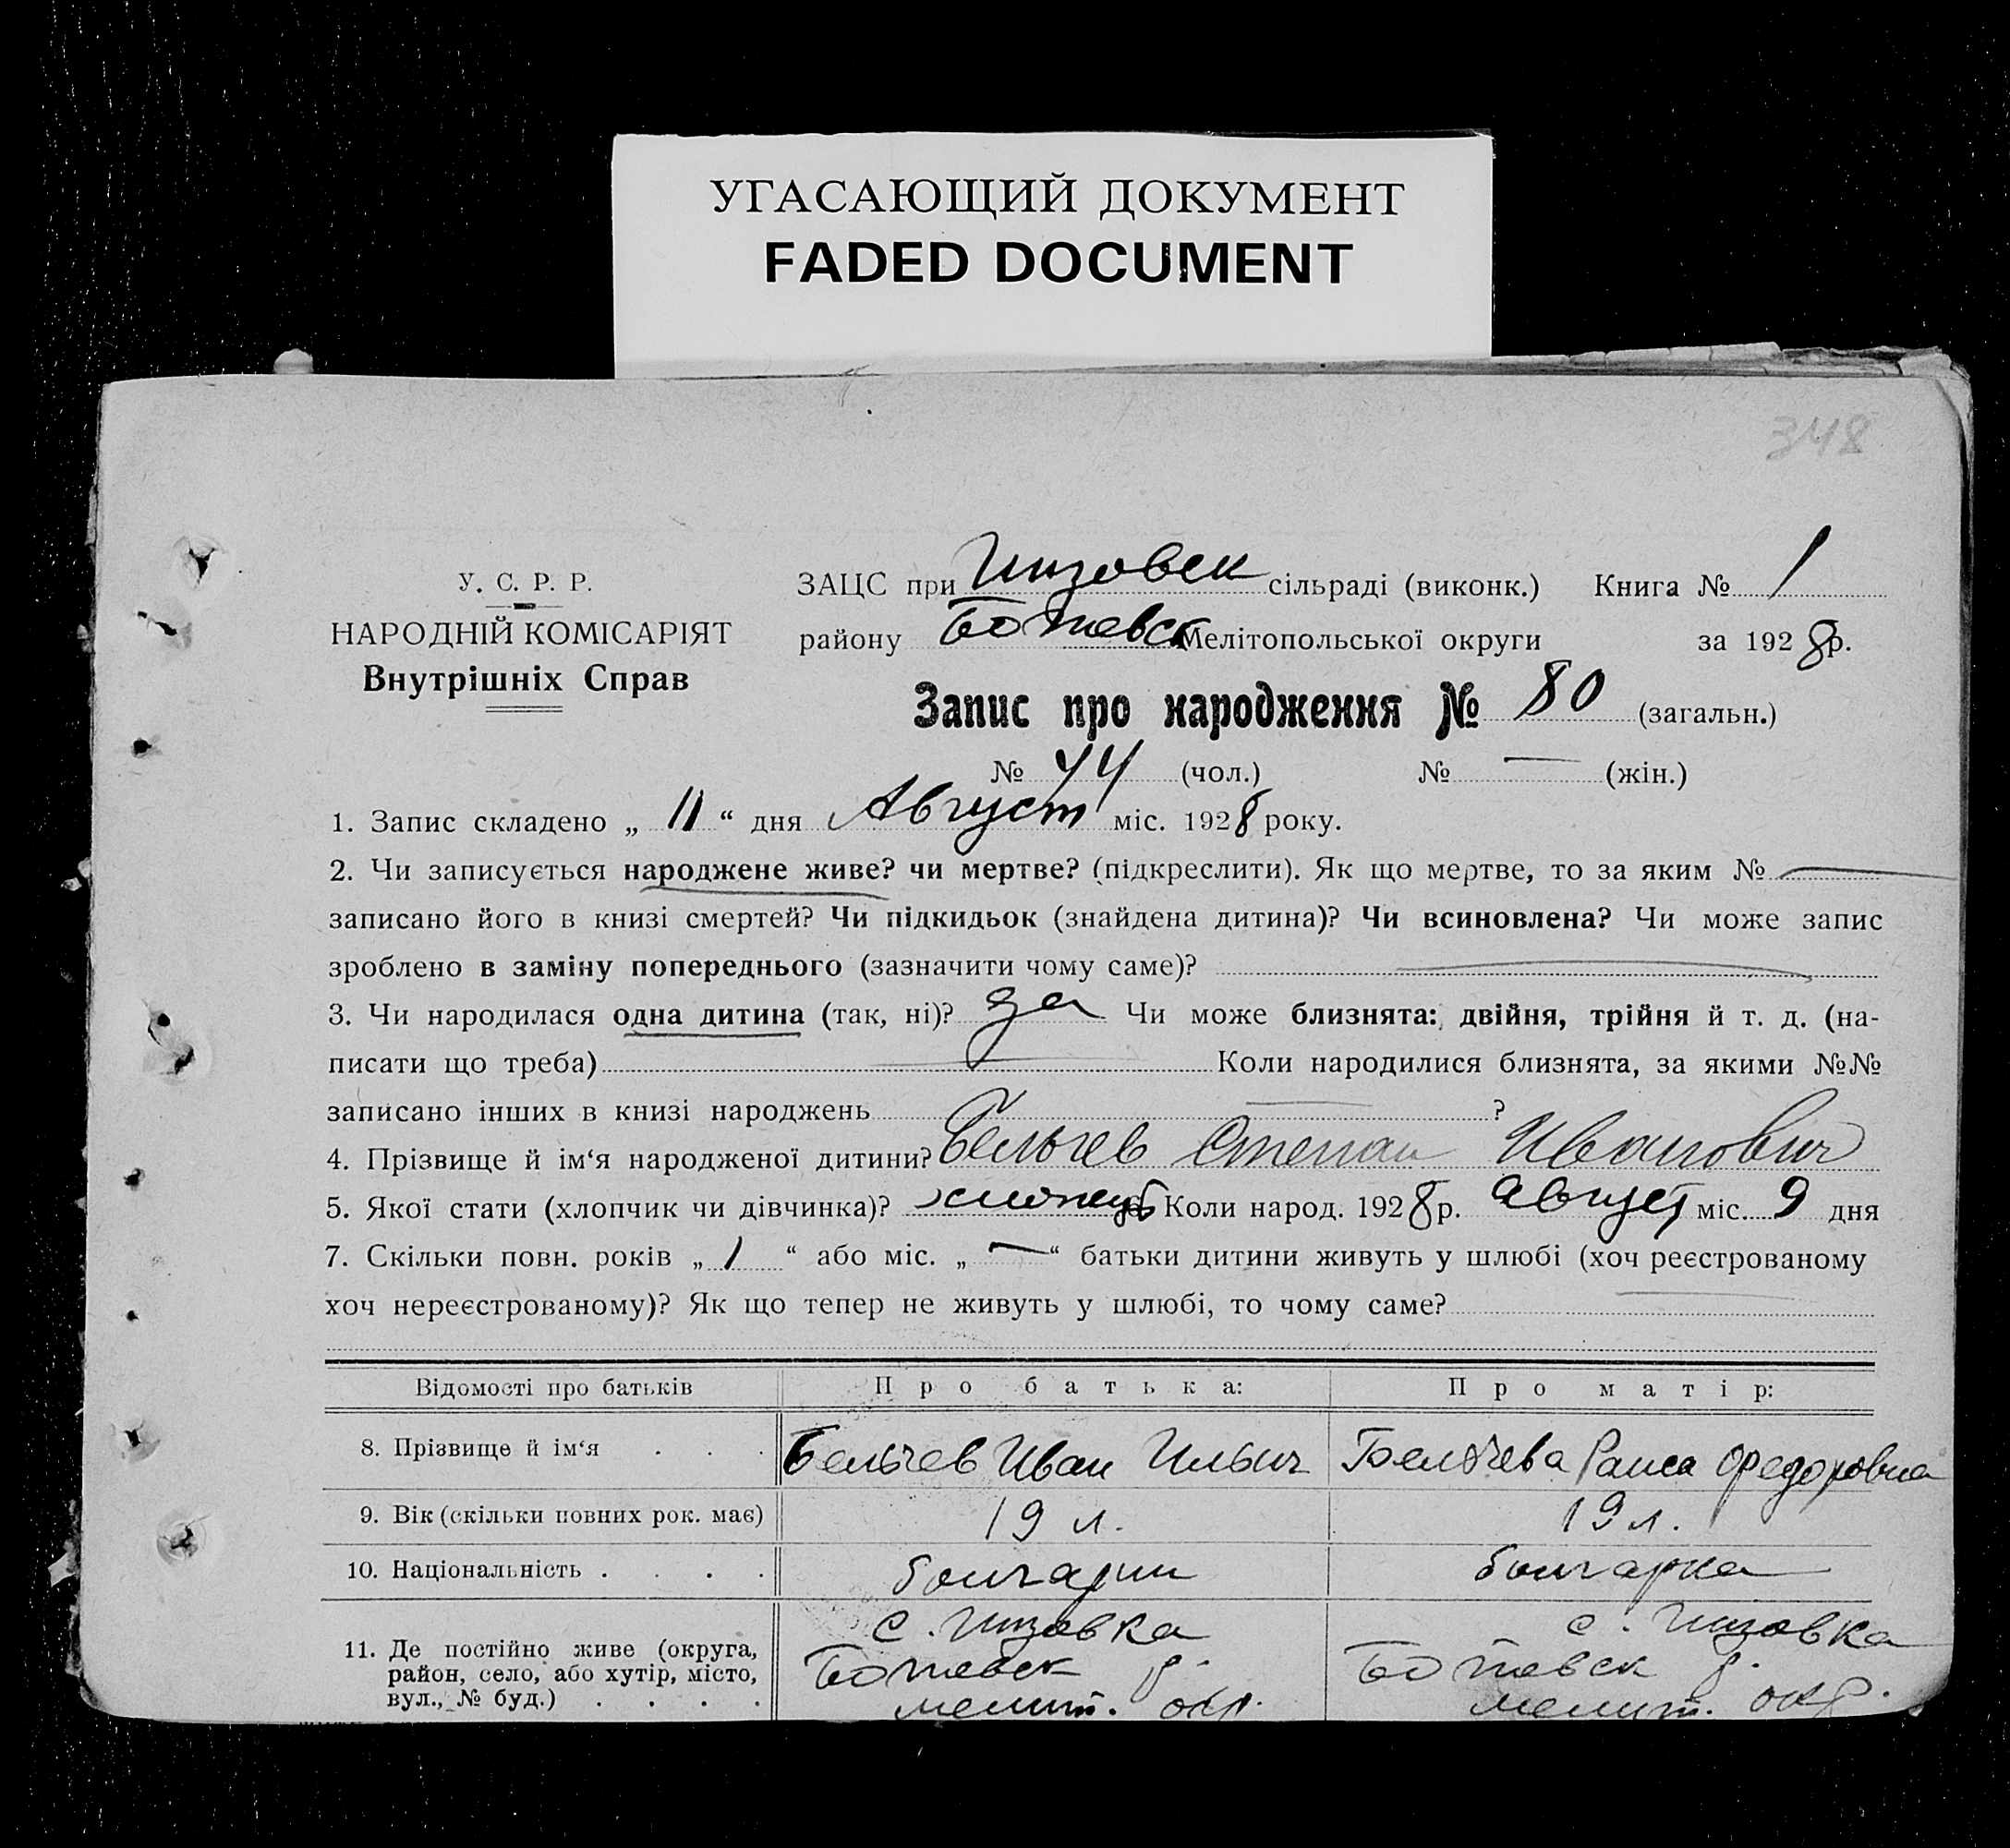 УГАСАЮЩИЙ ДОКУМЕНТ
FADED DOCUMENT
348
У. С. Р. Р.
НАРОДНІЙ КОМІСАРІЯТ
Внутрішніх Справ
ЗАЦС при Инзовск сільраді (виконк.) Книга № 1
району Ботиевск Мелітопольської округи за 1928 р.
Запис про народження № 80 (загальн.)
№ 44 (чол.) № — (жін.)
1. Запис складено „ 11 “ дня Август міс. 1928 року.
2. Чи записується народжене живе? чи мертве? (підкреслити). Як що мертве, то за яким № —
записано його в книзі смертей? Чи підкидьок (знайдена дитина)? Чи всиновлена? Чи може запис
зроблено в заміну попереднього (зазначити чому саме)? —
3. Чи народилася одна дитина (так, ні)? да Чи може близнята: двійня, трійня й т. д. (на-
писати що треба) — Коли народилися близнята, за якими №№
записано інших в книзі народжень — ?
4. Прізвище й ім‘я народженої дитини? Бельчев Степан Иванович
5. Якої стати (хлопчик чи дівчинка)? хлопець Коли народ. 1928 р. август міс. 9 дня
7. Скільки повн. років „ 1 “ або міс. „ — “ батьки дитини живуть у шлюбі (хоч реєстрованому
хоч нереєстрованому)? Як що тепер не живуть у шлюбі, то чому саме? —
Відомості про батьків Про батька: Про матір:
8. Прізвище й ім‘я . . . Бельчев Иван Ильич Бельчева Раиса Федоровна
9. Вік (скільки повних рок. має) 19 л. 19 л.
10. Національність . . . . болгарин болгарка
11. Де постійно живе (округа, район, село, або хутір, місто, вул., № буд.) . . . . с. Инзовка Ботиевск р. мелит. окр. с. Инзовка Ботиевск р. мелит. окр.